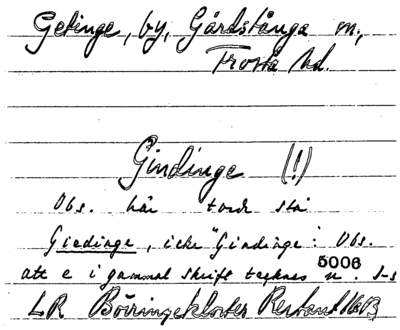 Getinge, by, Gårdstånga sn,
Frosta hd.
Gindinge (!)
Obs. här torde stå
Giedinge, icke "Gindinge": Obs.
att e i gammal skrift tecknas n. I-s
5006
LR Börringekloster Restant 1613